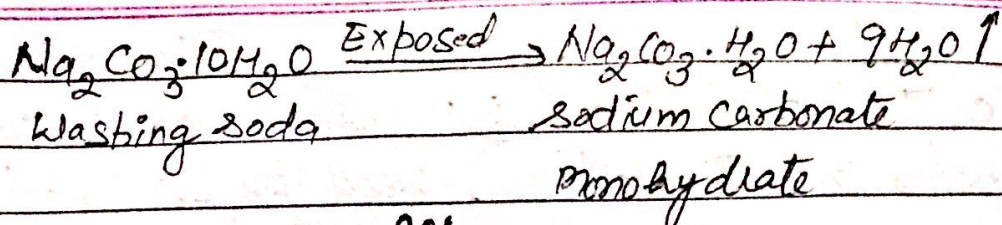 Na₂CO₃·10H₂O Exposed → Na₂CO₃·H₂O + 9H₂O↑
Washing soda sodium carbonate
monohydrate